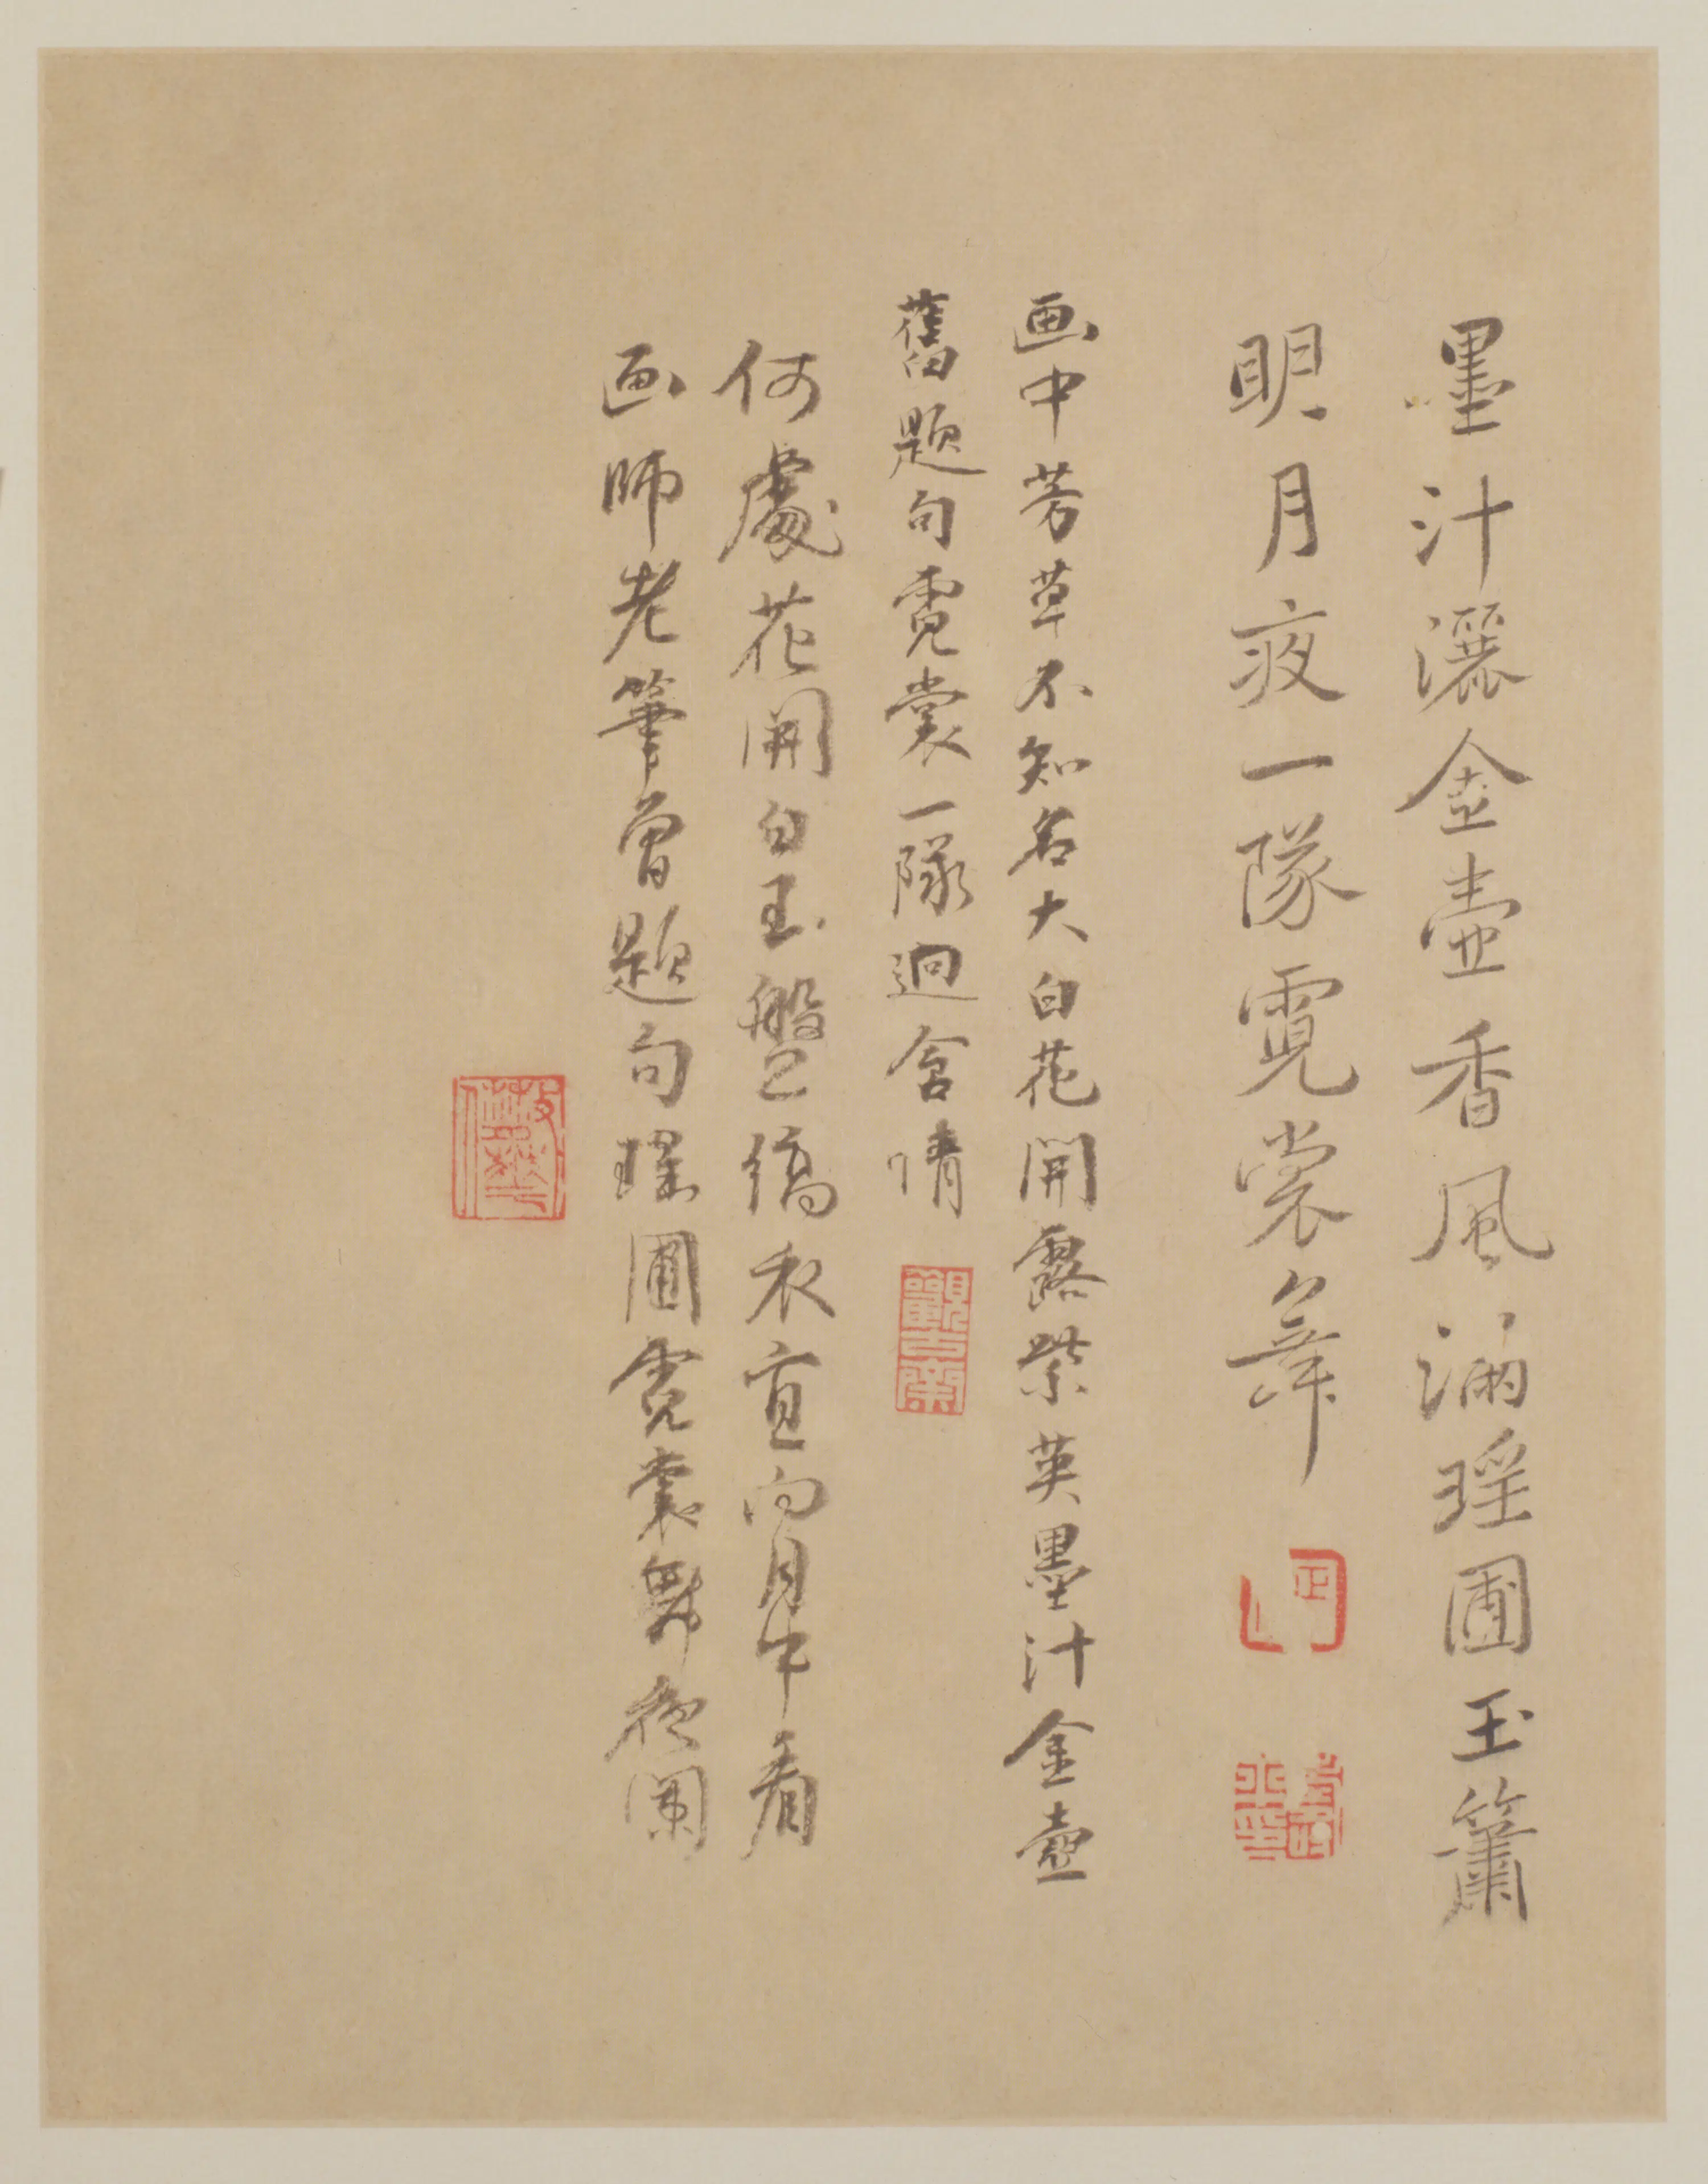 墨汁灑金壺香風滿瑤圃玉簫
明月夜一隊霓裳舞
画中芳草不知名大白花開露紫英墨汁金壺
舊題句霓裳一隊迥含情
何處花開白玉盤縞衣宜向月中看
画師老筆曾題句瑤圃霓裳舞夜闌